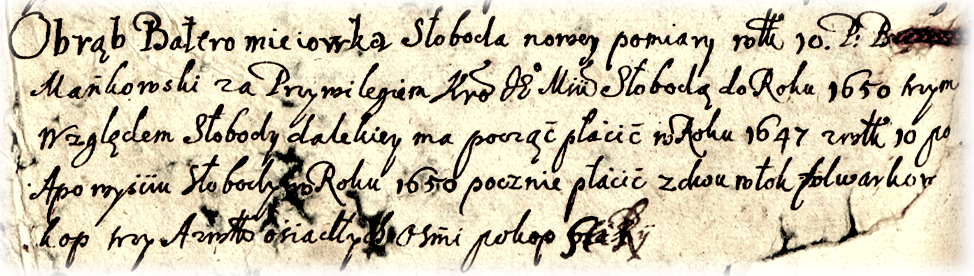 Obrąb Batłromieiowka Słoboda nowey pomiary włk 10. P. B
Mańkowski za Przywilegiem Kro JE° Mśći Słobodą do Roku 1650 trzym
Względem Słobody dalekiey ma począć płácić w Roku 1647 z włk 10 po
A po wyśćiu Słobody w Roku 1650 pocznie płácić z dwu włok folwarkow
kop trzy A z włk ośiadłych ośmi po kop